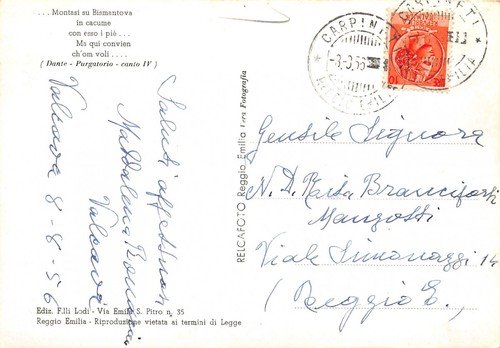 ... Montasi su Bismantova
in cacume
con esso i piè ...
Ma qui convien
ch'om voli ....
( Dante - Purgatorio - canto IV )
Saluti affettuosi
Maddalena
Valcava
Valcava 8-8-56
Ediz. F.lli Lodi - Via Emilia S. Pitro n. 35
Reggio Emilia - Riproduzione vietata ai termini di Legge
RELCAFOTO Reggio Emilia Vera Fotografia
CARPINETI
REGGIO EMILIA
CARPINETI
EMILIA
10
Gentile Signora
N. D. Rita Branciforti
Mangotti
Viale Simonazzi 14
(Reggio E.)